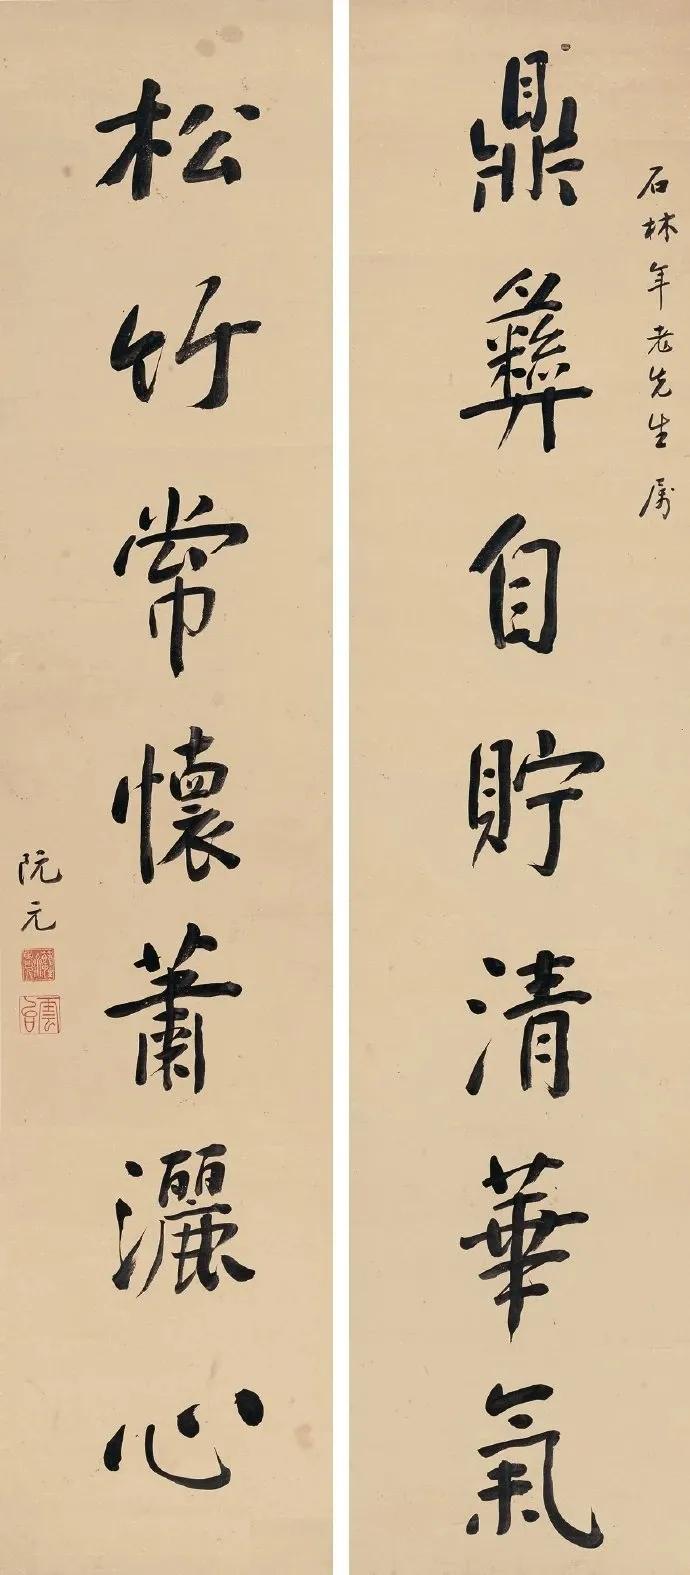 石林年老先生属
鼎彝自貯清華氣
松竹常懷蕭灑心
阮元
雲台